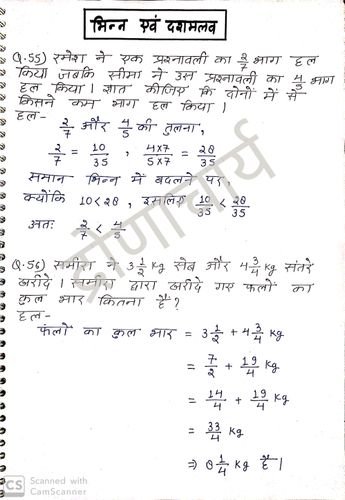 भिन्न एवं दशमलव
Q.55) रमेश ने एक प्रश्नावली का 2/7 भाग हल
किया जबकि सीमा ने उस प्रश्नावली का 4/5 भाग
हल किया। ज्ञात कीजिए कि दोनों में से
किसने कम भाग हल किया।
हल-
2/7 और 4/5 की तुलना,
2/7 = 10/35, 4×7/5×7 = 28/35
समान भिन्न में बदलने पर,
क्योंकि 10<28, इसलिए 10/35 < 28/35
अतः 2/7 < 4/5
Q.56) समीरा ने 3 1/2 Kg सेब और 4 3/4 Kg संतरे
खरीदे। समीरा द्वारा खरीदे गए फलों का
कुल भार कितना है?
हल-
फलों का कुल भार = 3 1/2 + 4 3/4 Kg
= 7/2 + 19/4 Kg
= 14/4 + 19/4 Kg
= 33/4 Kg
⇒ 8 1/4 Kg है।
द्रोणाचार्य
CS
Scanned with
CamScanner